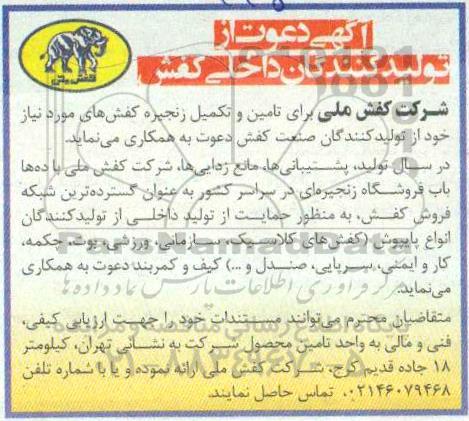 آگهی دعوت از
تولیدکنندگان داخلی کفش
کفش ملی
شرکت کفش ملی برای تامین و تکمیل زنجیره کفش‌های مورد نیاز
خود از تولیدکنندگان صنعت کفش دعوت به همکاری می‌نماید.
در سال تولید، پشتیبانی‌ها، مانع زدایی‌ها، شرکت کفش ملی با ده‌ها
باب فروشگاه زنجیره‌ای در سراسر کشور به عنوان گسترده‌ترین شبکه
فروش کفش، به منظور حمایت از تولید داخلی از تولیدکنندگان
انواع پاپوش (کفش‌های کلاسیک، سازمانی، ورزشی، بوت، چکمه،
کار و ایمنی، سرپایی، صندل و ...) کیف و کمربند دعوت به همکاری
می‌نماید.
متقاضیان محترم می‌توانند مستندات خود را جهت ارزیابی کیفی،
فنی و مالی به واحد تامین محصول شرکت به نشانی تهران، کیلومتر
۱۸ جاده قدیم کرج، شرکت کفش ملی ارائه نموده و یا با شماره تلفن
۰۲۱۴۶۰۷۹۴۶۸ تماس حاصل نمایند.